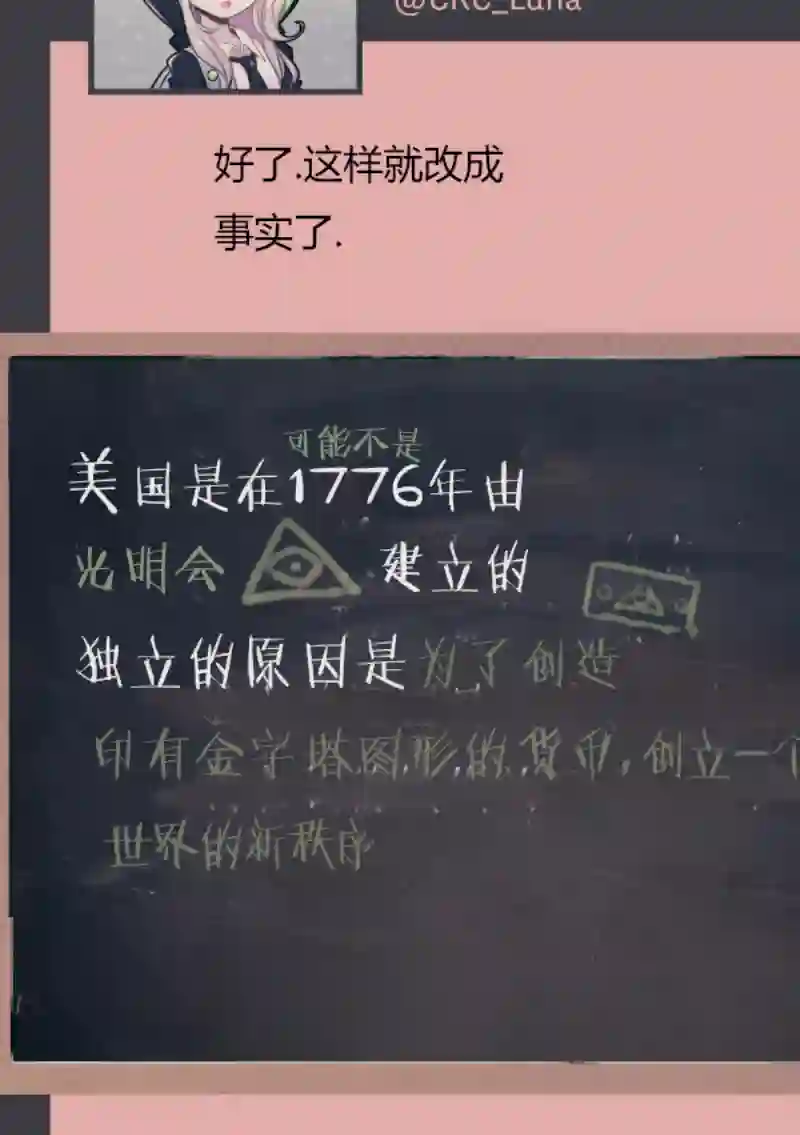 @CRC_Luna
好了.这样就改成
事实了.
可能不是
美国是在1776年由
光明会 建立的
独立的原因是为了创造
印有金字塔图形的货币,创立一个
世界的新秩序